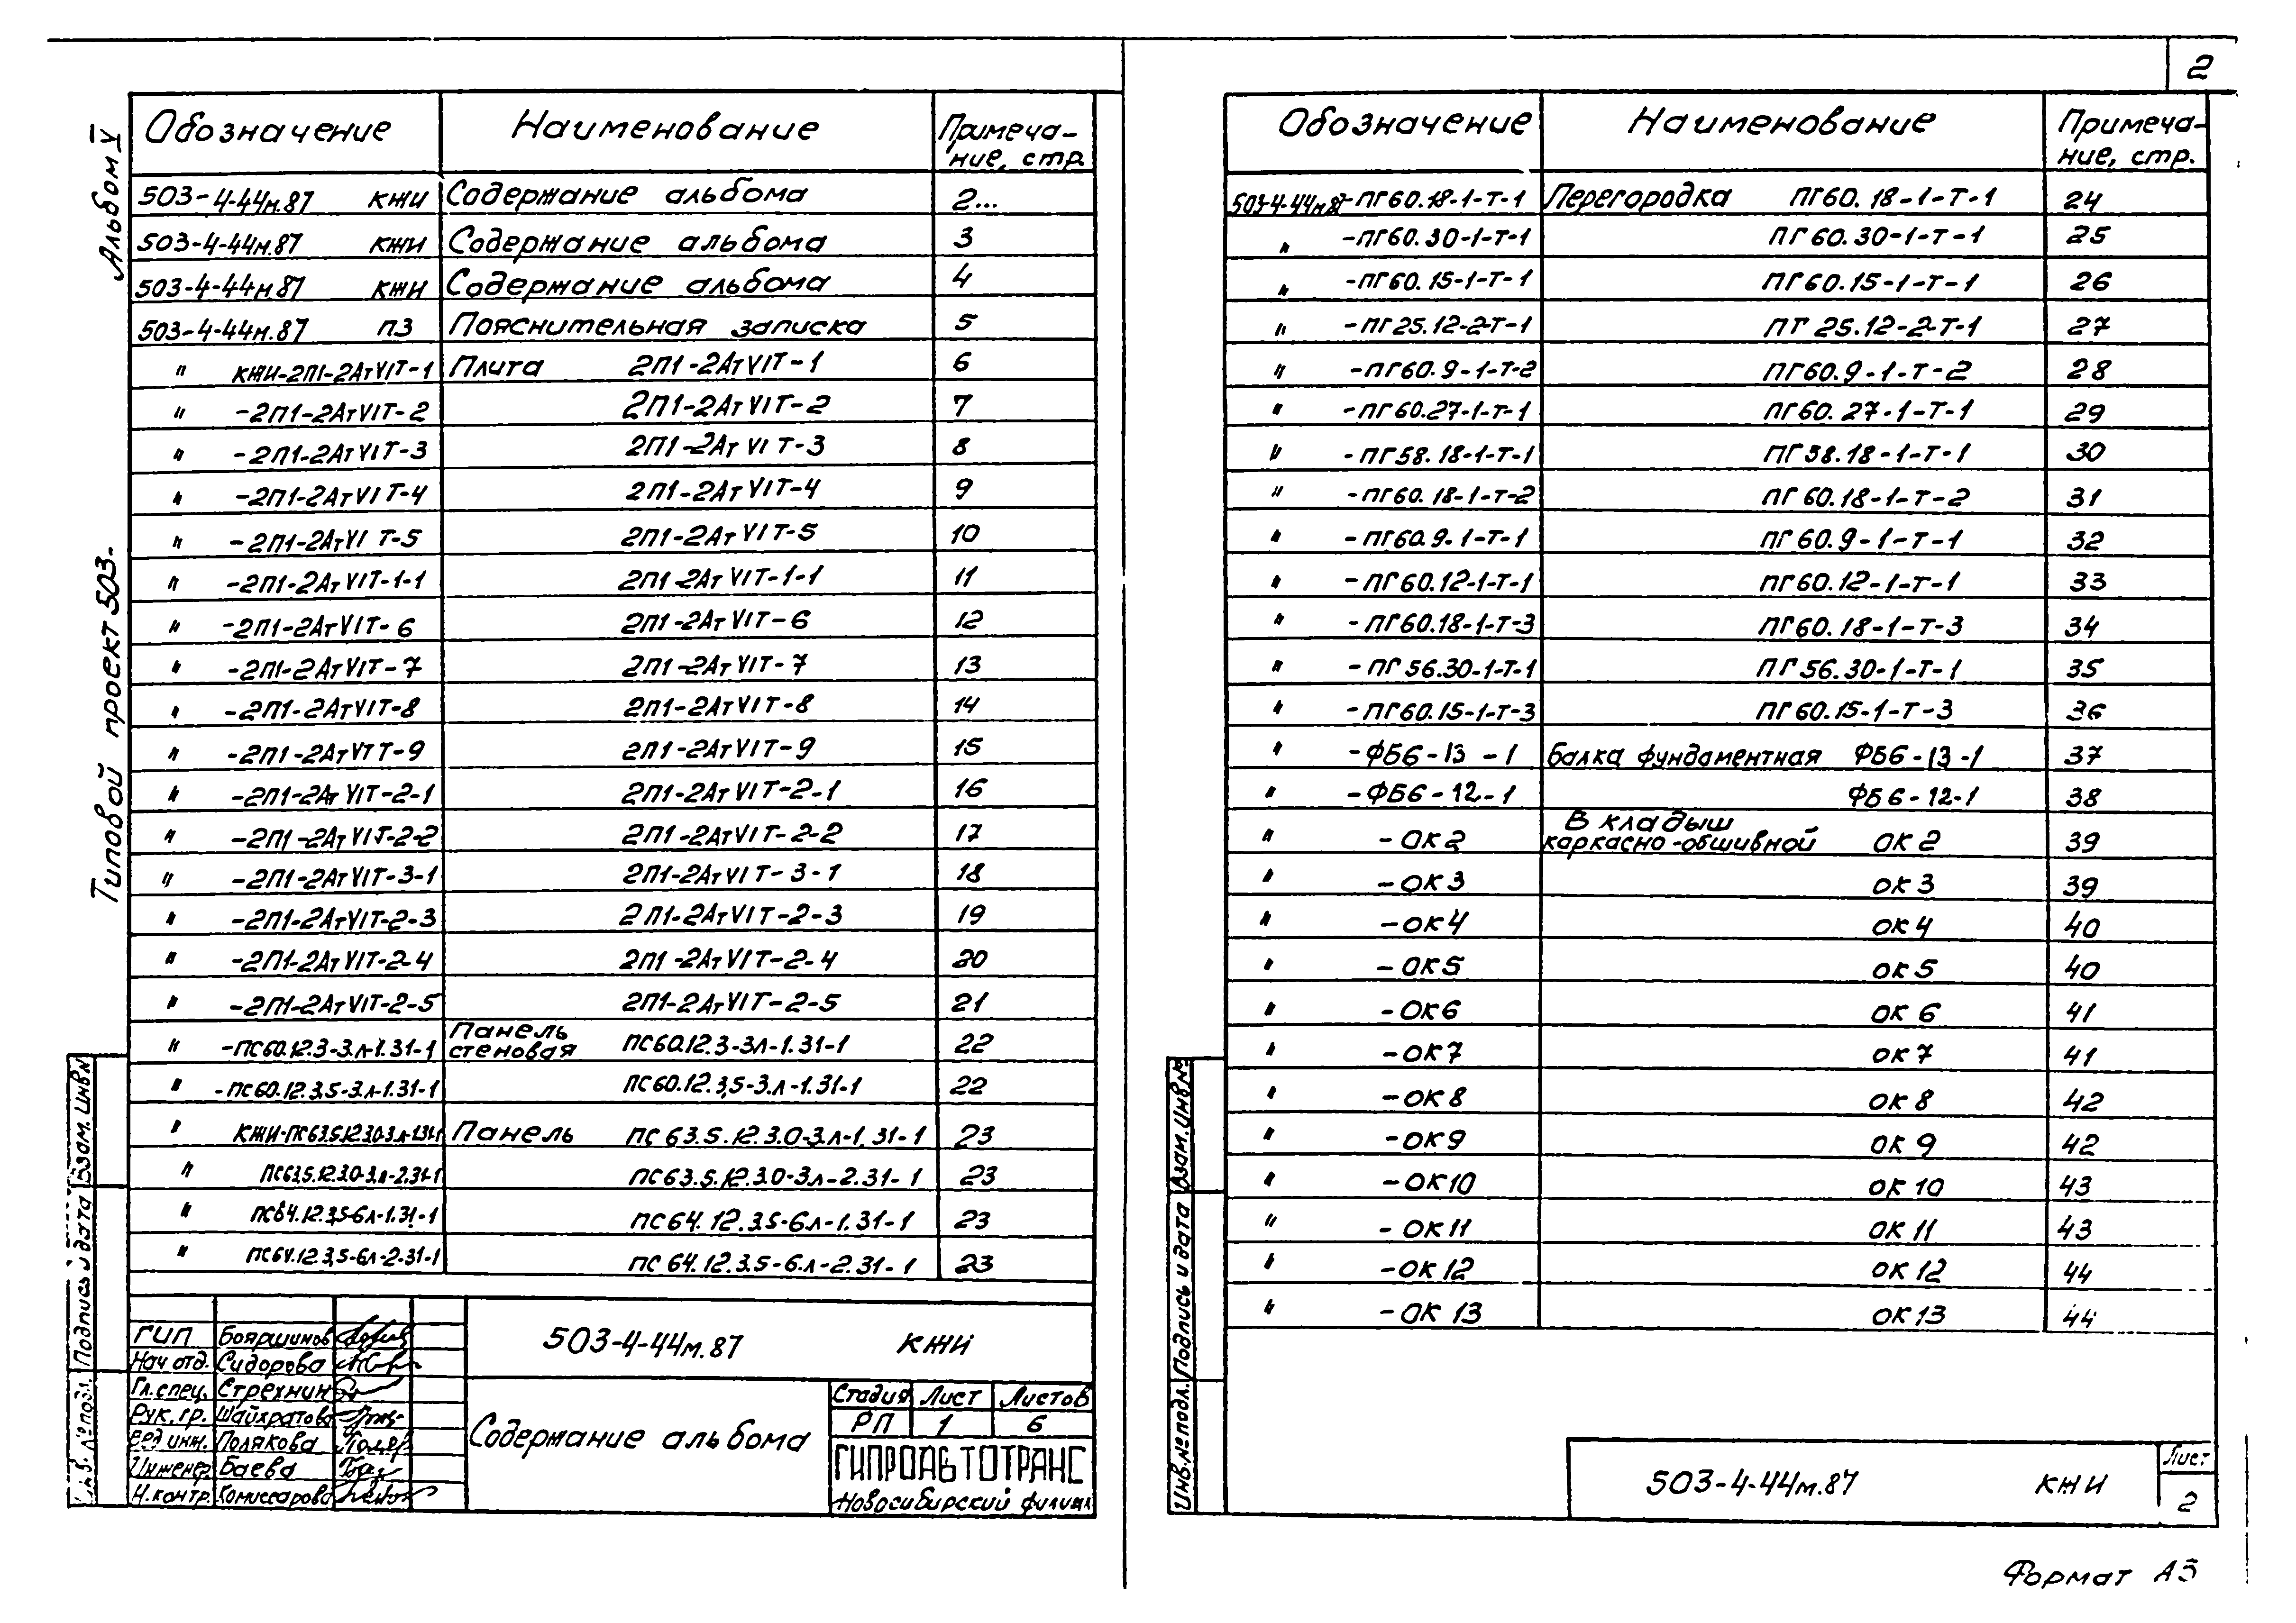 2
Альбом V
Типовой проект 503-
Обозначение Наименование Примеча-
ние, стр.
503-4-44м.87 КЖИ Содержание альбома 2...
503-4-44м.87 КЖИ Содержание альбома 3
503-4-44м.87 КЖИ Содержание альбома 4
503-4-44м.87 ПЗ Пояснительная записка 5
" КЖИ-2П1-2АтVIТ-1 Плита 2П1-2АтVIТ-1 6
" -2П1-2АтVIТ-2 2П1-2АтVIТ-2 7
" -2П1-2АтVIТ-3 2П1-2АтVIТ-3 8
" -2П1-2АтVIТ-4 2П1-2АтVIТ-4 9
" -2П1-2АтVIТ-5 2П1-2АтVIТ-5 10
" -2П1-2АтVIТ-1-1 2П1-2АтVIТ-1-1 11
" -2П1-2АтVIТ-6 2П1-2АтVIТ-6 12
" -2П1-2АтVIТ-7 2П1-2АтVIТ-7 13
" -2П1-2АтVIТ-8 2П1-2АтVIТ-8 14
" -2П1-2АтVIТ-9 2П1-2АтVIТ-9 15
" -2П1-2АтVIТ-2-1 2П1-2АтVIТ-2-1 16
" -2П1-2АтVIТ-2-2 2П1-2АтVIТ-2-2 17
" -2П1-2АтVIТ-3-1 2П1-2АтVIТ-3-1 18
" -2П1-2АтVIТ-2-3 2П1-2АтVIТ-2-3 19
" -2П1-2АтVIТ-2-4 2П1-2АтVIТ-2-4 20
" -2П1-2АтVIТ-2-5 2П1-2АтVIТ-2-5 21
" -ПС60.12.3-3.л-1.31-1 Панель стеновая ПС60.12.3-3л-1.31-1 22
" -ПС60.12.3.5-3.л-1.31-1 ПС60.12.3,5-3.л-1.31-1 22
" КЖИ-ПС63.5.12.3.0-3.л-1.31-1 Панель ПС63.5.12.3.0-3.л-1.31-1 23
" ПС63.5.12.3.0-3.л-2.31-1 ПС63.5.12.3.0-3л-2.31-1 23
" ПС64.12.3,5-6л-1.31-1 ПС64.12.3.5-6.л-1.31-1 23
" ПС64.12.3,5-6л-2.31-1 ПС64.12.3.5-6.л-2.31-1 23
Взам. Инв.N
Подпись и дата
Инв. № подл.
ГИП Бояршинов
Нач отд. Сидорова
Гл. спец. Стрехнин
Рук. гр. Шайхратова
Вед инж. Полякова
Инженер Баева
Н.контр. Комиссарова
503-4-44м.87 КЖИ
Содержание альбома
Стадия Лист Листов
РП 1 6
ГИПРОАВТОТРАНС
Новосибирский филиал
Обозначение Наименование Примеча-
ние, стр.
503-4-44м.87-ПГ60.18-1-Т-1 Перегородка ПГ60.18-1-Т-1 24
" -ПГ60.30-1-Т-1 ПГ60.30-1-Т-1 25
" -ПГ60.15-1-Т-1 ПГ60.15-1-Т-1 26
" -ПГ25.12-2-Т-1 ПГ25.12-2-Т-1 27
" -ПГ60.9-1-Т-2 ПГ60.9-1-Т-2 28
" -ПГ60.27-1-Т-1 ПГ60.27-1-Т-1 29
" -ПГ58.18-1-Т-1 ПГ58.18-1-Т-1 30
" -ПГ60.18-1-Т-2 ПГ60.18-1-Т-2 31
" -ПГ60.9-1-Т-1 ПГ60.9-1-Т-1 32
" -ПГ60.12-1-Т-1 ПГ60.12-1-Т-1 33
" -ПГ60.18-1-Т-3 ПГ60.18-1-Т-3 34
" -ПГ56.30-1-Т-1 ПГ56.30-1-Т-1 35
" -ПГ60.15-1-Т-3 ПГ60.15-1-Т-3 36
" -ФБ6-13-1 Балка фундаментная ФБ6-13-1 37
" -ФБ6-12-1 ФБ6-12-1 38
" -ОК2 Вкладыш каркасно-обшивной ОК2 39
" -ОК3 ОК3 39
" -ОК4 ОК4 40
" -ОК5 ОК5 40
" -ОК6 ОК6 41
" -ОК7 ОК7 41
" -ОК8 ОК8 42
" -ОК9 ОК9 42
" -ОК10 ОК10 43
" -ОК11 ОК11 43
" -ОК12 ОК12 44
" -ОК13 ОК13 44
Взам. Инв.№
Подпись и дата
Инв.№ подл.
503-4-44м.87 КЖИ
Лист
2
Формат А3